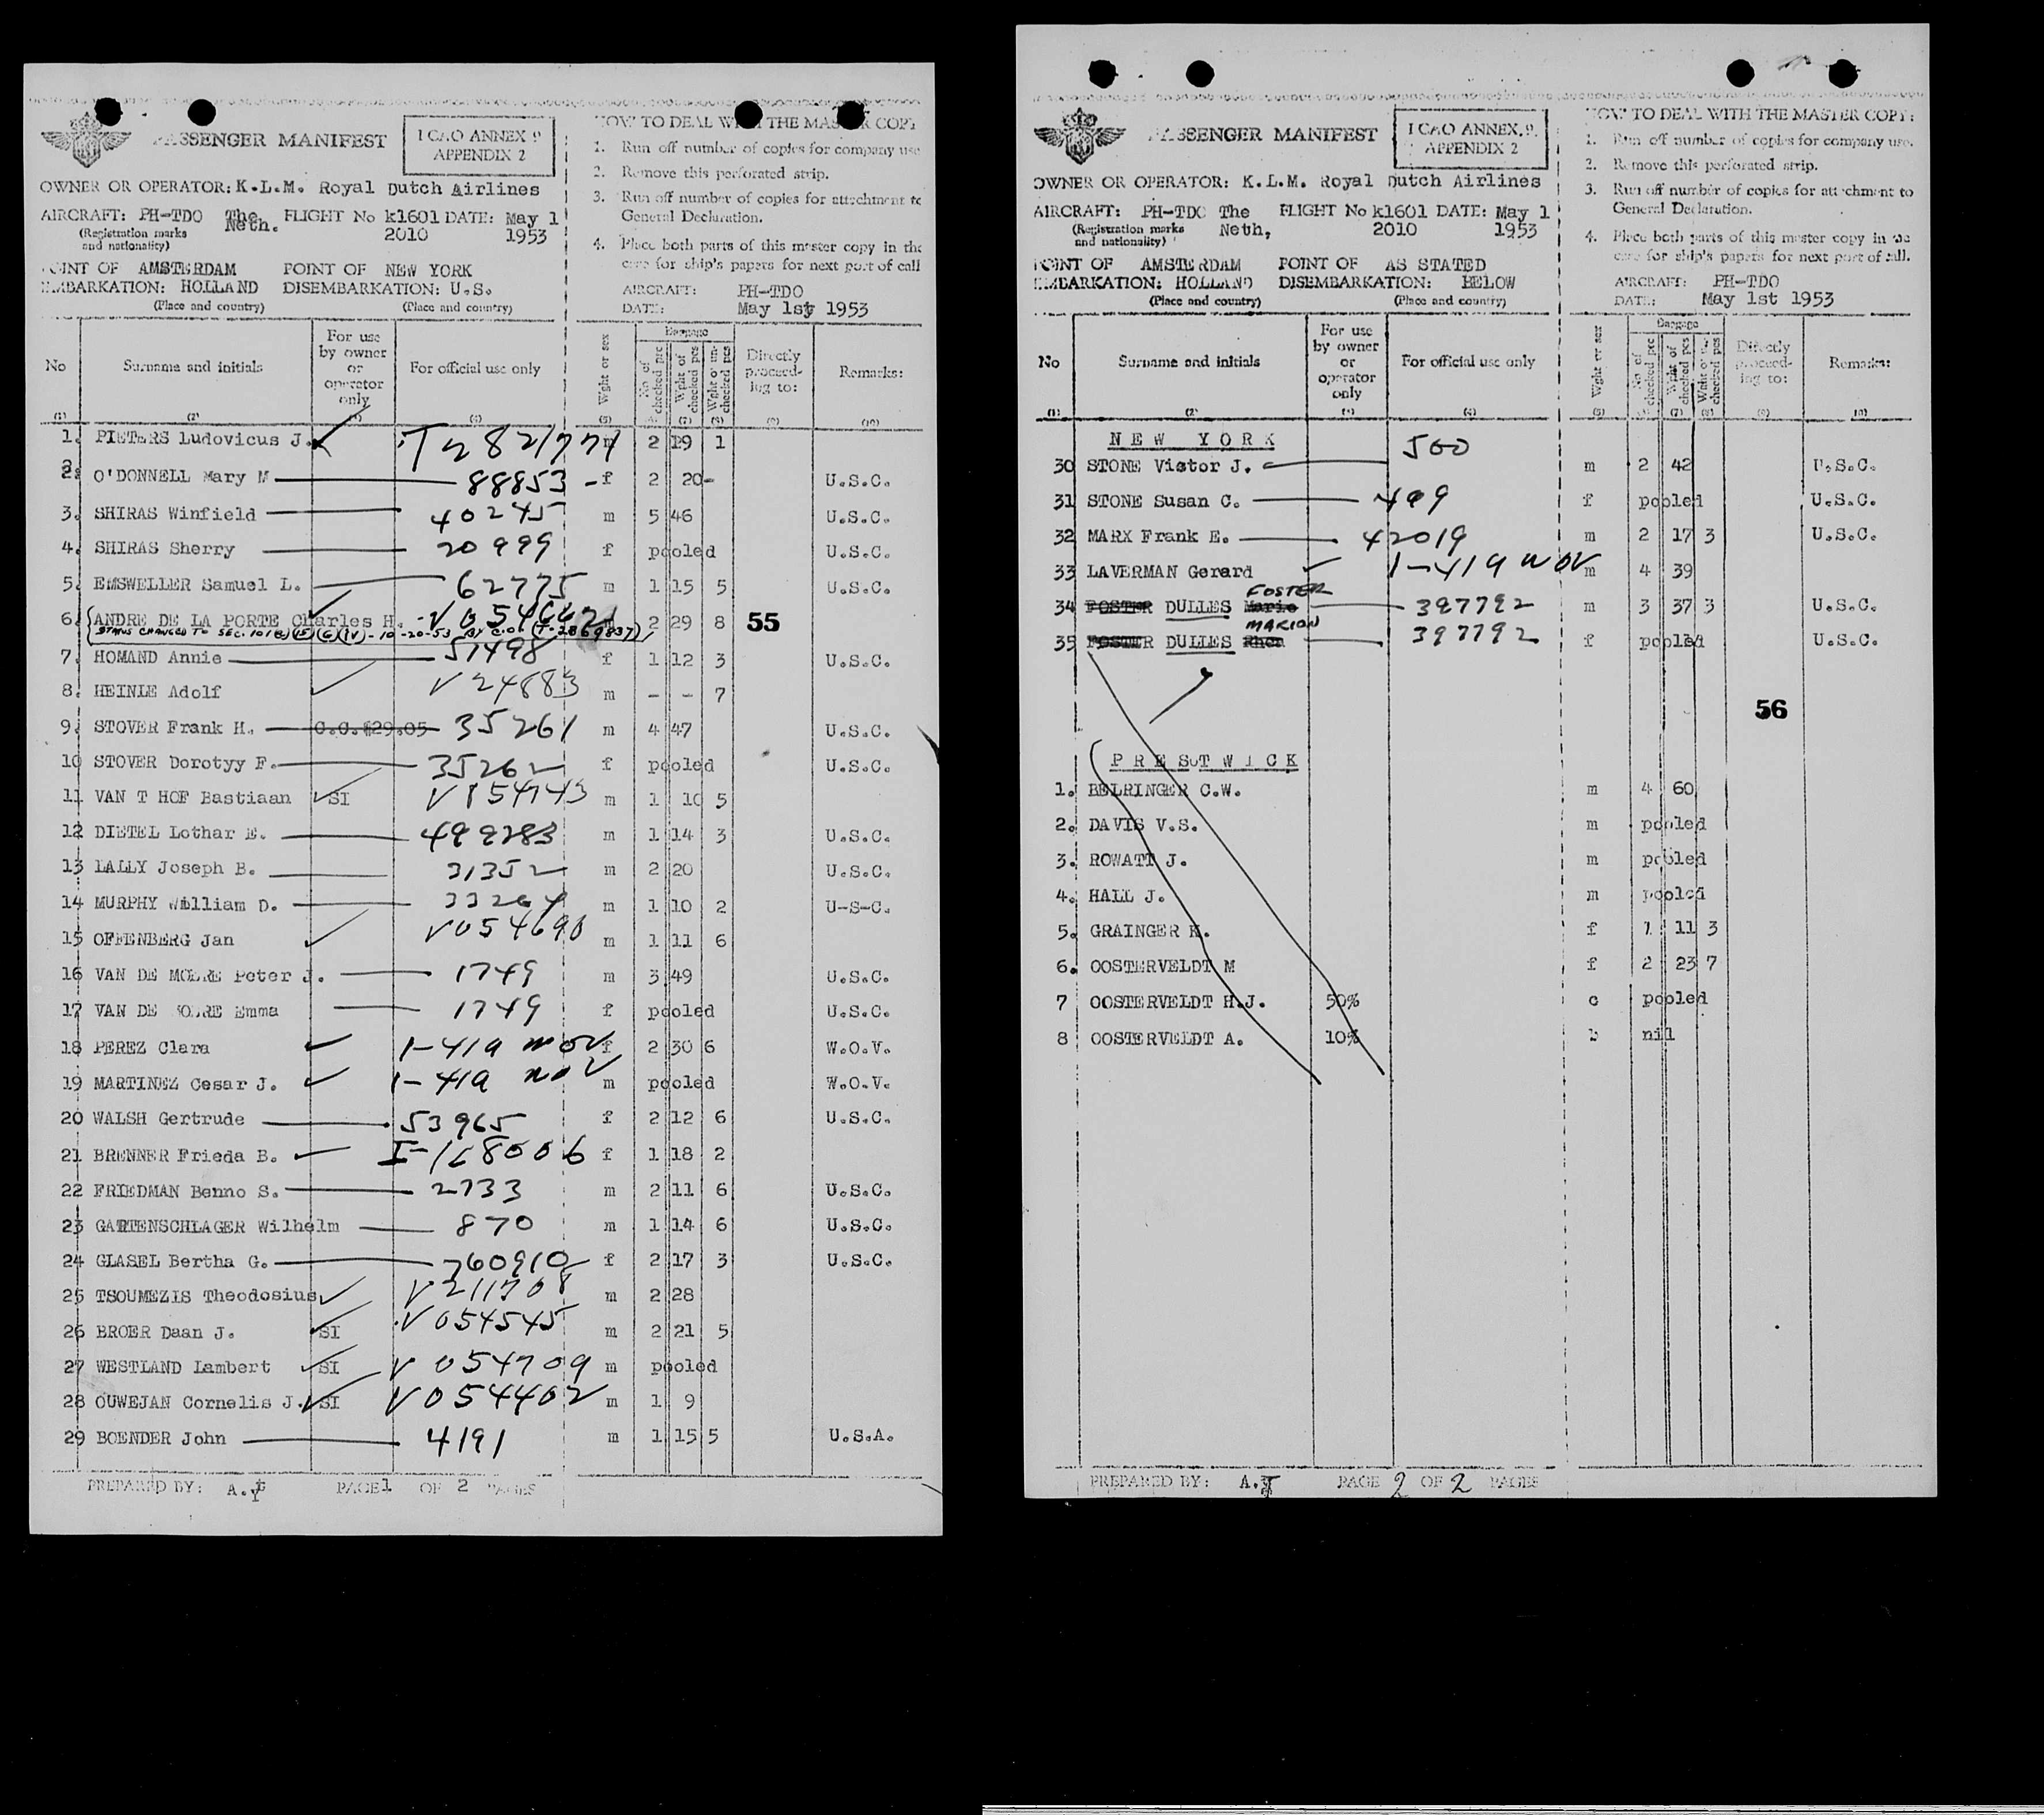 PASSENGER MANIFEST
I CAO ANNEX 9
APPENDIX 2
OWNER OR OPERATOR: K.L.M. Royal Dutch Airlines
AIRCRAFT: PH-TDO The Neth. FLIGHT No k1601 2010 DATE: May 1 1953
(Registration marks
and nationality)
POINT OF EMBARKATION: AMSTERDAM HOLLAND POINT OF DISEMBARKATION: NEW YORK U.S.
(Place and country) (Place and country)
HOW TO DEAL WITH THE MASTER COPY
1. Run off number of copies for company use
2. Remove this perforated strip.
3. Run off number of copies for attachment to
General Declaration.
4. Place both parts of this master copy in the
care for ship's papers for next port of call
AIRCRAFT: PH-TDO
DATE: May 1st 1953
No Surname and initials For use by owner or operator only For official use only Wght or sex Baggage No of checked pcs Wght of checked pcs Wght of un-checked pcs Directly proceeding to: Remarks:
(1) (2) (3) (4) (5) (6) (7) (8) (9) (10)
1. PIETERS Ludovicus J. T2821771 m 2 19 1
2. O'DONNELL Mary M 88853 - f 2 20- U.S.C.
3. SHIRAS Winfield 40245 m 5 46 U.S.C.
4. SHIRAS Sherry 20999 f pooled U.S.C.
5. EMSWELLER Samuel L. 62775 m 1 15 5 U.S.C.
6. ANDRE DE LA PORTE Charles H. V054662 2 29 8 55
STATUS CHANGED TO SEC. 101(a)(15)(G)(IV)-10-20-53 BY C.O. (T-2869837)
7. HOMAND Annie 51498 f 1 12 3 U.S.C.
8. HEINLE Adolf V24883 m - - 7
9. STOVER Frank H. C.C.$29.05 35261 m 4 47 U.S.C.
10 STOVER Dorotyy F. 35262 f pooled U.S.C.
11 VAN T HOF Bastiaan SI V154743 m 1 10 5
12 DIETEL Lothar E. 499283 m 1 14 3 U.S.C.
13 LALLY Joseph B. 31352 m 2 20 U.S.C.
14 MURPHY William D. 33264 m 1 10 2 U-S-C.
15 OFFENBERG Jan V054690 m 1 11 6
16 VAN DE MOERE Peter J. 1749 m 3 49 U.S.C.
17 VAN DE MOERE Emma 1749 f pooled U.S.C.
18 PEREZ Clara 1-419 NOV f 2 30 6 W.O.V.
19 MARTINEZ Cesar J. 1-419 NOV m pooled W.O.V.
20 WALSH Gertrude 53965 f 2 12 6 U.S.C.
21 BRENNER Frieda B. I-168006 f 1 18 2
22 FRIEDMAN Benno S. 2733 m 2 11 6 U.S.C.
23 GARTENSCHLAGER Wilhelm 870 m 1 14 6 U.S.C.
24 GLASEL Bertha G. 760910 f 2 17 3 U.S.C.
25 TSOUMEZIS Theodosius V211708 m 2 28
26 BROER Daan J. SI V054545 m 2 21 5
27 WESTLAND Lambert SI V054709 m pooled
28 OUWEJAN Cornelis J. SI V054402 m 1 9
29 BOENDER John 4191 m 1 15 5 U.S.A.
PREPARED BY: A. PAGE 1 OF 2 PAGES
PASSENGER MANIFEST
I CAO ANNEX. 9.
APPENDIX 2
OWNER OR OPERATOR: K.L.M. Royal Dutch Airlines
AIRCRAFT: PH-TDO The Neth, FLIGHT No k1601 2010 DATE: May 1 1953
(Registration marks
and nationality)
POINT OF EMBARKATION: AMSTERDAM HOLLAND POINT OF DISEMBARKATION: AS STATED BELOW
(Place and country) (Place and country)
HOW TO DEAL WITH THE MASTER COPY:
1. Run off number of copies for company use.
2. Remove this perforated strip.
3. Run off number of copies for attachment to
General Declaration.
4. Place both parts of this master copy in the
care for ship's papers for next port of call.
AIRCRAFT: PH-TDO
DATE: May 1st 1953
No Surname and initials For use by owner or operator only For official use only Wght or sex Baggage No of checked pcs Wght of checked pcs Wght of un-checked pcs Directly proceeding to: Remarks:
(1) (2) (3) (4) (5) (6) (7) (8) (9) (10)
NEW YORK
30 STONE Victor J. 500 m 2 42 U.S.C.
31 STONE Susan C. 499 f pooled U.S.C.
32 MARX Frank E. 42019 m 2 17 3 U.S.C.
33 LAVERMAN Gerard 1-419 NOV m 4 39
34 FOSTER DULLES Mario FOSTER 397792 m 3 37 3 U.S.C.
35 FOSTER DULLES Rhea MARION 397792 f pooled U.S.C.
56
PRESTWICK
1. BELRINGER C.W. m 4 60
2. DAVIS V.S. m pooled
3. ROWATT J. m pooled
4. HALL J. m pooled
5. GRAINGER K. f 1 11 3
6. OOSTERVELDT M f 2 23 7
7 OOSTERVELDT H.J. 50% c pooled
8 OOSTERVELDT A. 10% b nil
PREPARED BY: A. PAGE 2 OF 2 PAGES